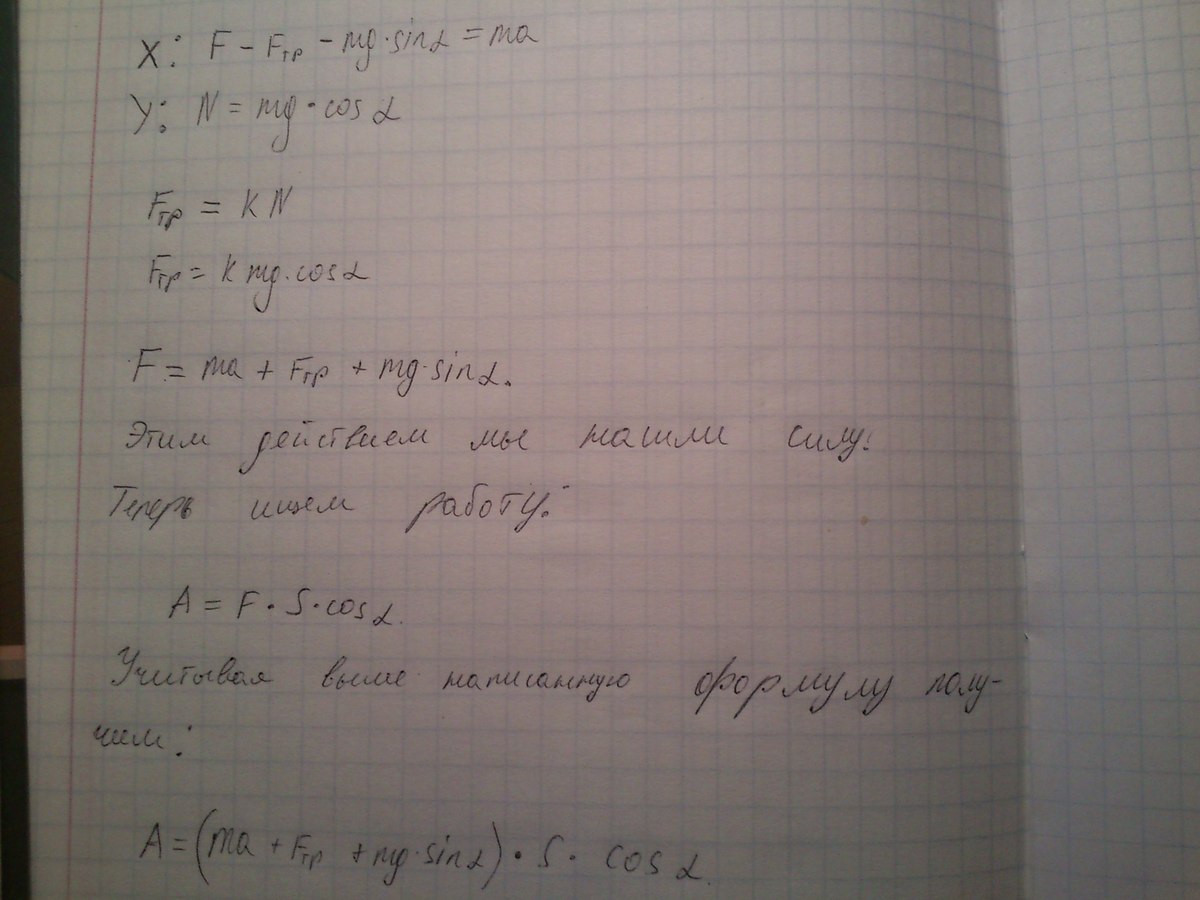 X: F - Fтр - mg·sinα = ma
У: N = mg·cosα
Fтр = kN
Fтр = kmg·cosα
F = ma + Fтр + mg·sinα.
Этим действием мы нашли силу.
Теперь ищем работу:
A = F·S·cosα.
Учитывая выше написанную формулу полу-
чим:
A = (ma + Fтр + mg·sinα)·S·cosα.